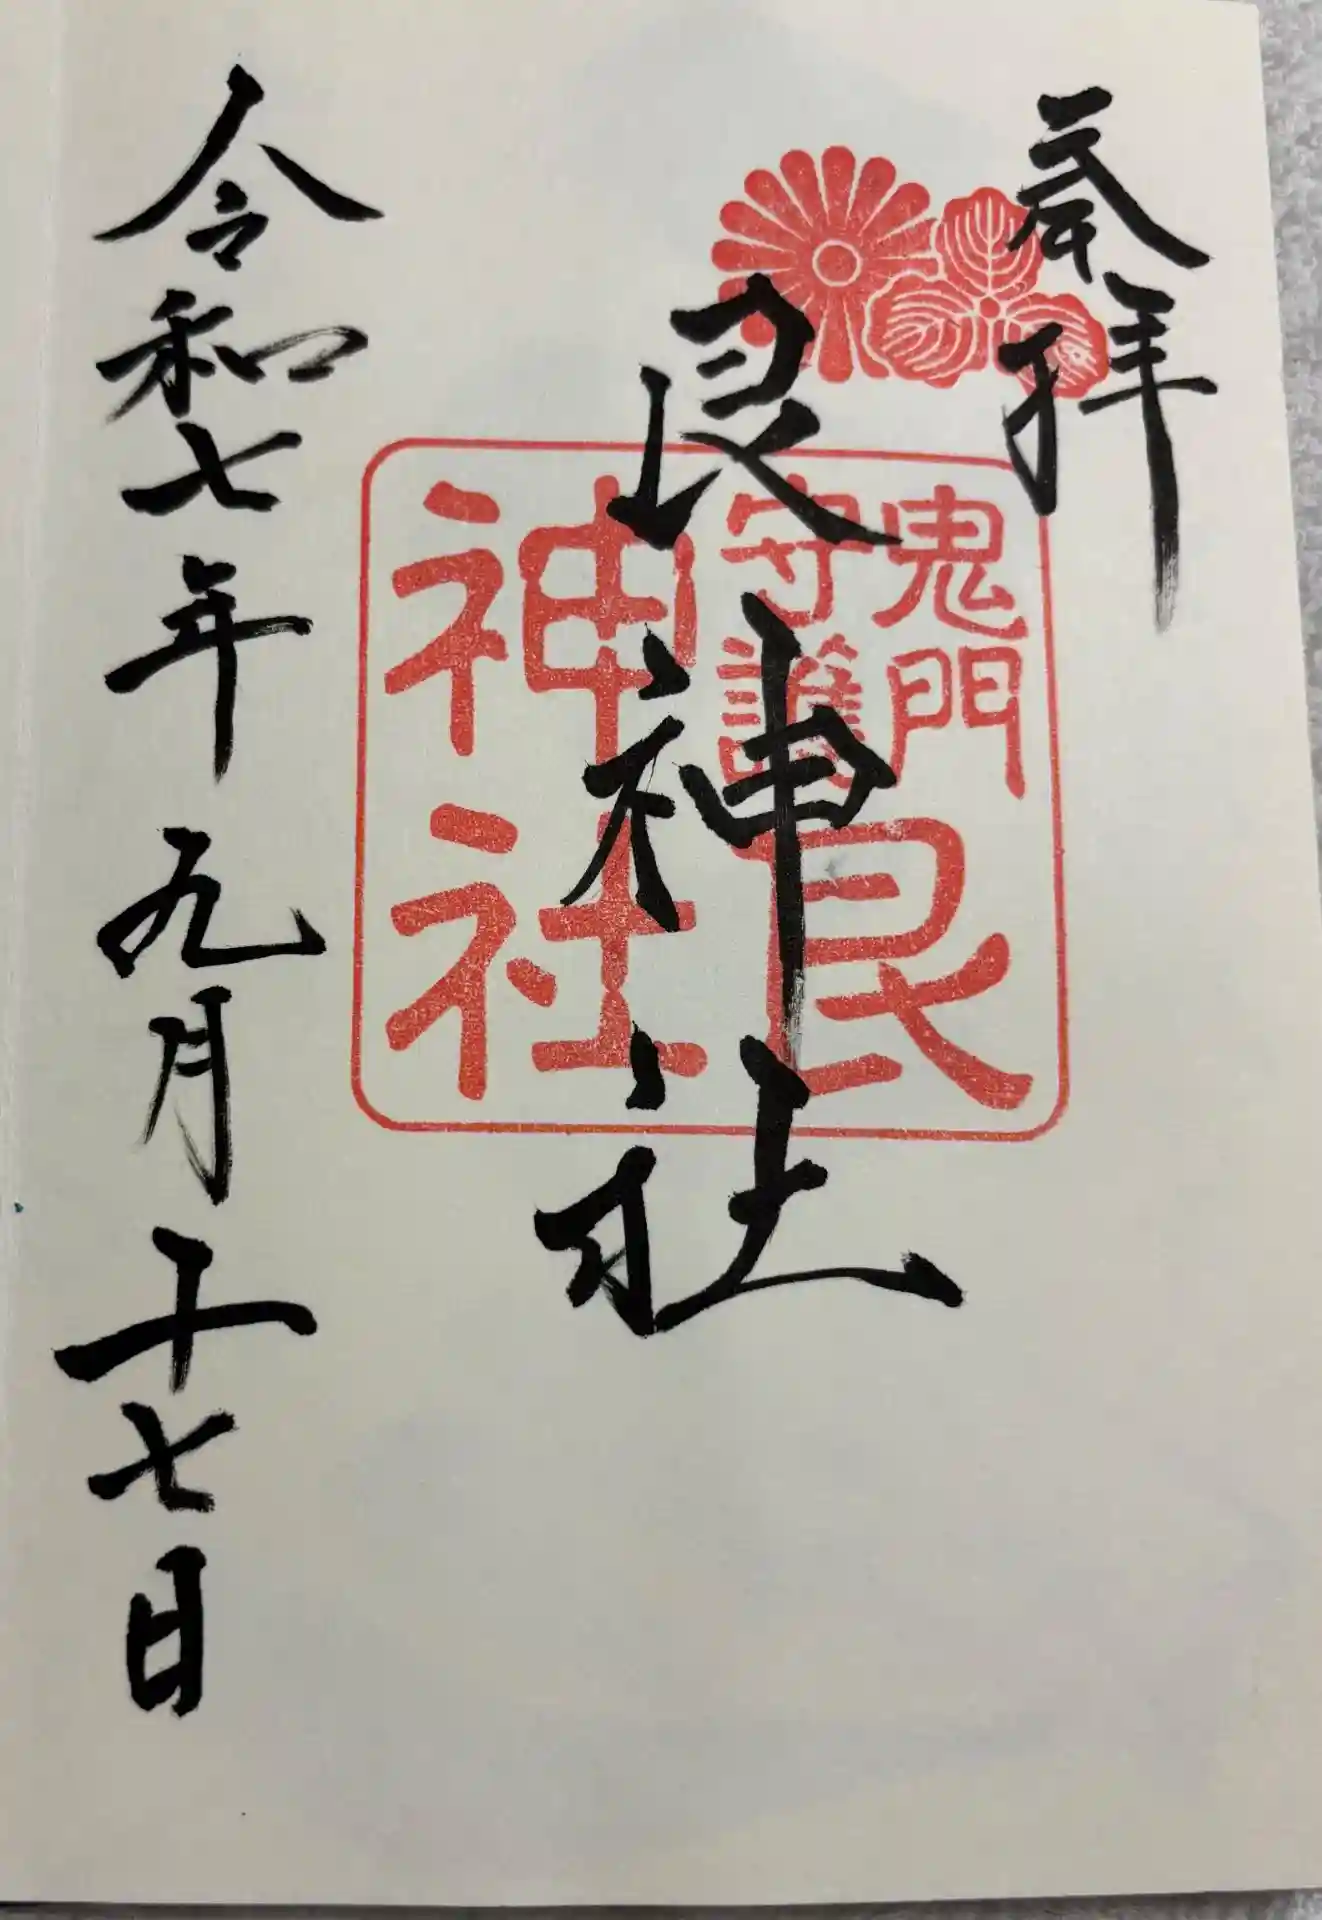 奉拝
艮神社
鬼門
守護
艮
神社
令和七年九月十七日